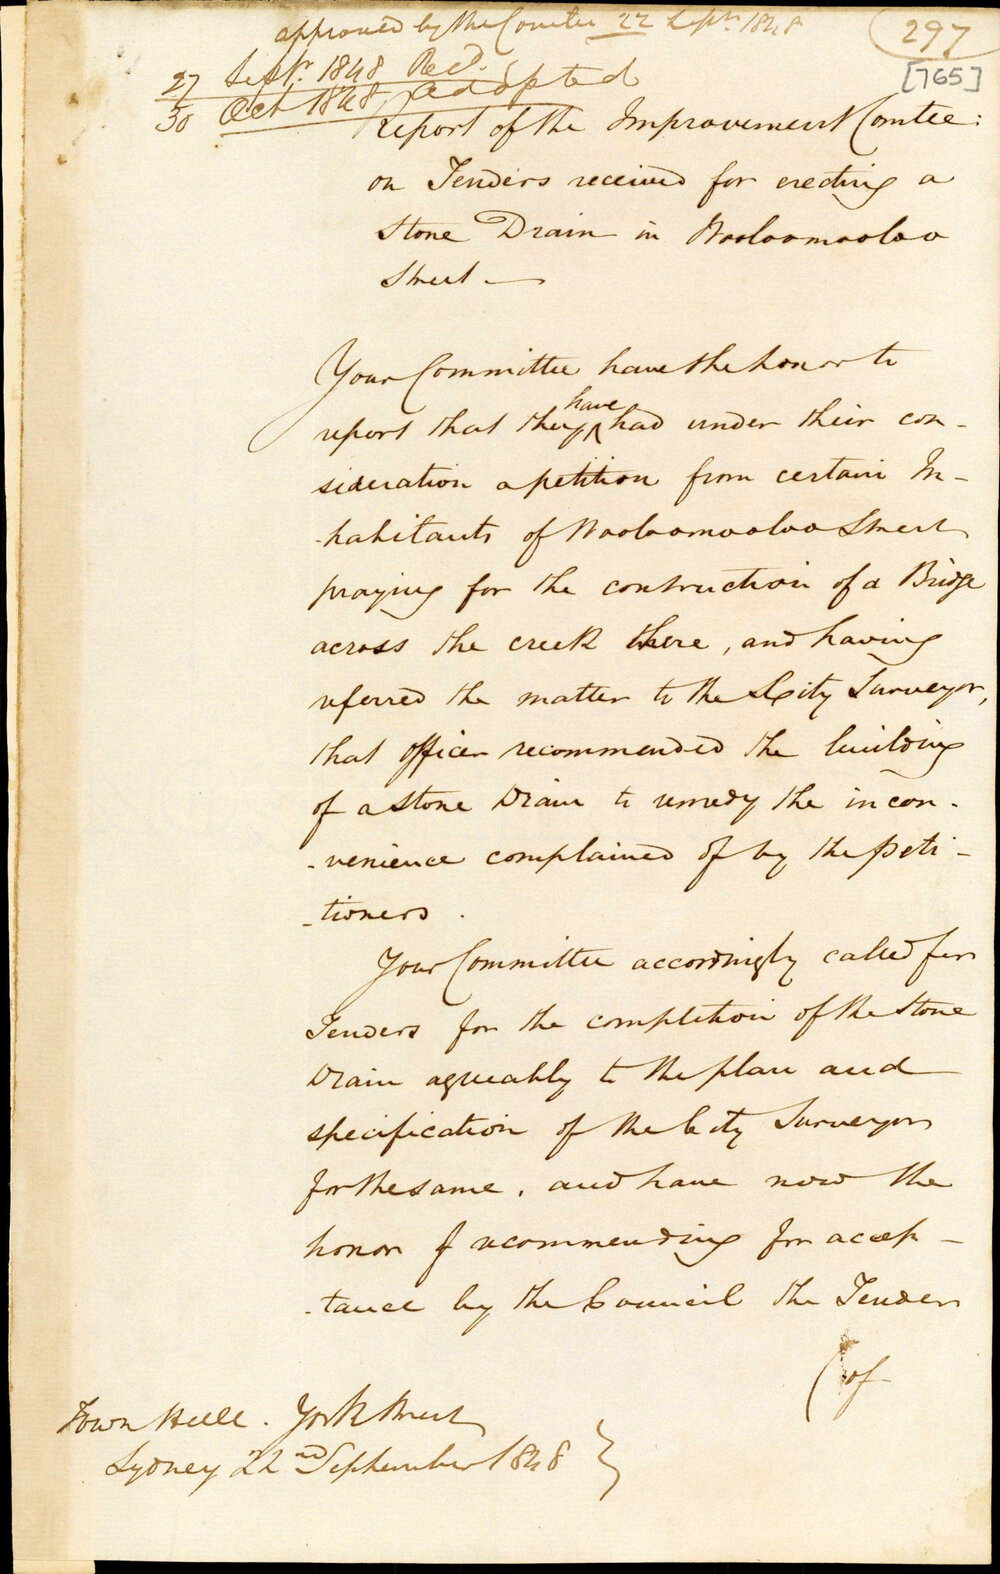 approved by the Comtee 22 Septr. 1848
297
[765]
27 Septr. 1848 Recd.
30 Oct 1848 adopted
Report of the Improvement Comtee:
on Tenders received for erecting a
Stone Drain in Wooloomooloo
Street —
Your Committee have the honor to
report that they have had under their con-
sideration a petition from certain In-
-habitants of Wooloomooloo Street
praying for the construction of a Bridge
across the creek there, and having
referred the matter to the City Surveyor,
that officer recommended the building
of a Stone Drain to remedy the incon-
-venience complained of by the peti-
-tioners.
Your Committee accordingly called for
Tenders for the completion of the Stone
Drain agreeably to the plan and
specification of the City Surveyor
for the same, and have now the
honor of recommending for accep-
-tance by the Council the Tender
(of
Town Hall. York Street
Sydney 22nd September 1848 }